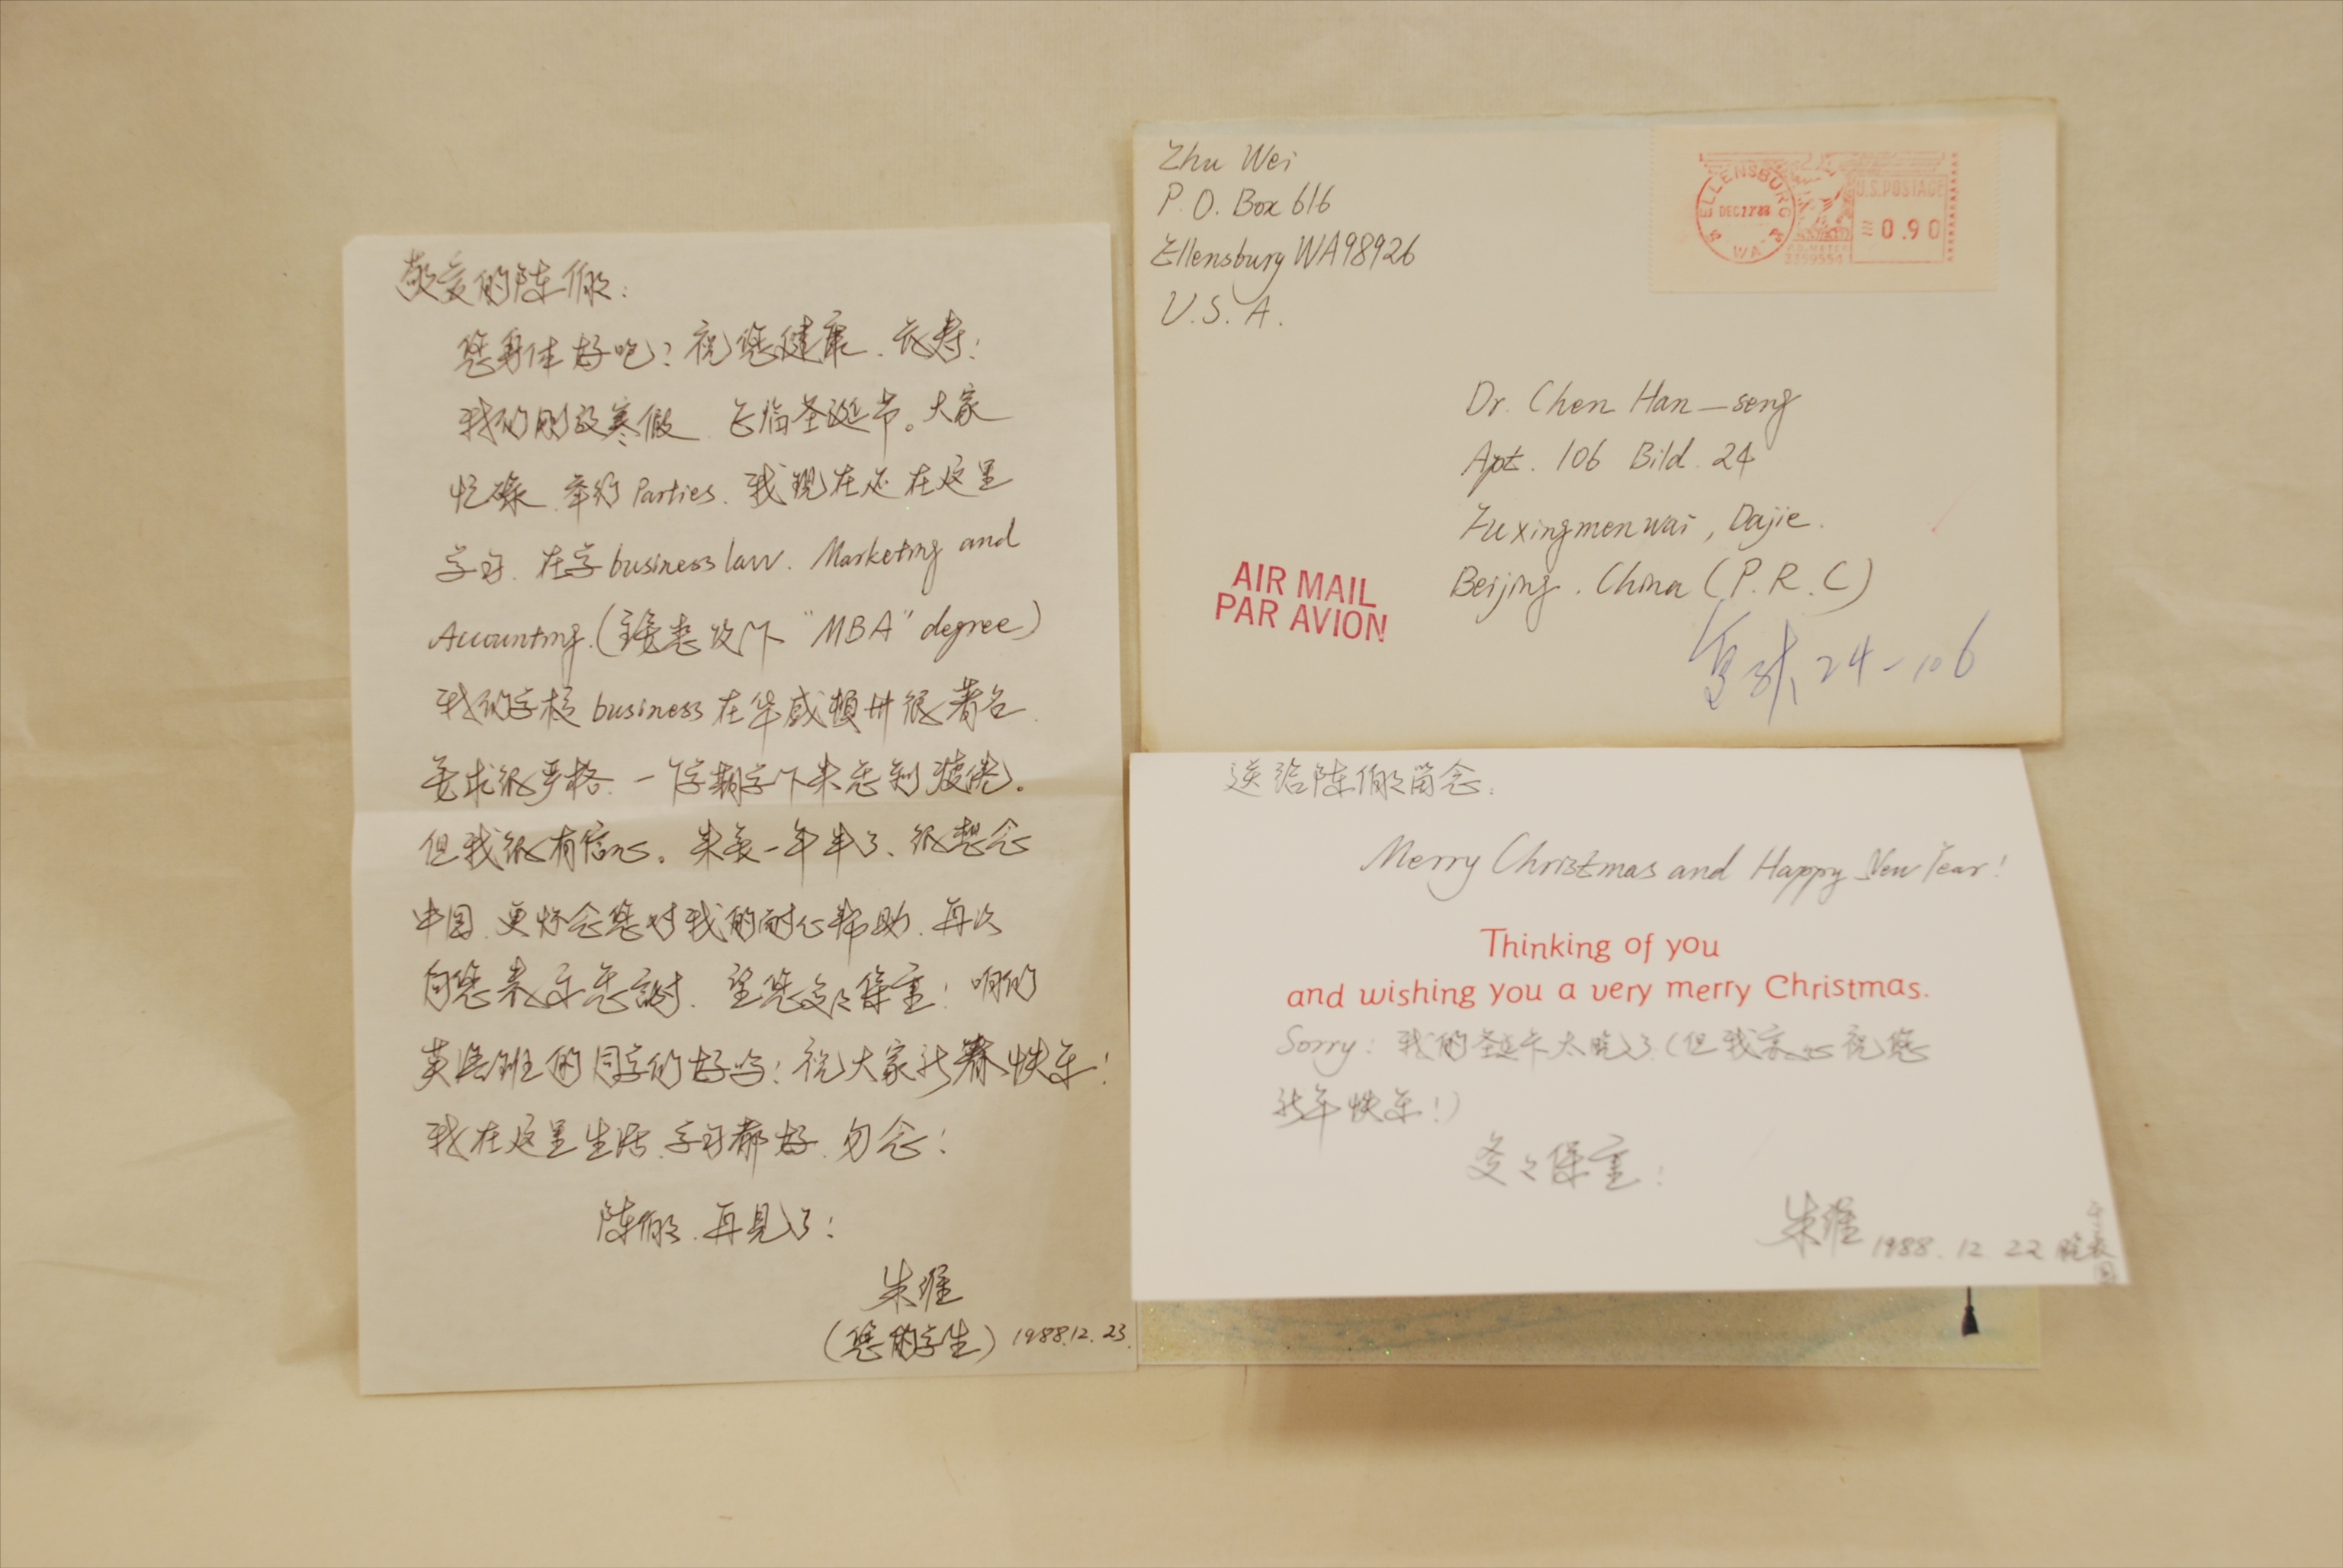 敬爱的陈伯伯:
您身体好吧?祝您健康、长寿!
我们刚放寒假、在临圣诞节。大家
忙碌、举行 Parties、我现在还在这里
学习、在学 business law. Marketing and
Accounting.(我想攻下 "MBA" degree)
我们学校 business 在华盛顿州很著名、
要求很严格、一个学期学下来感到疲倦。
但我很有信心。来美一年半了、很想念
中国、更怀念您对我的耐心帮助、再次
向您表示感謝、望您多多保重!咱们
英语班的同学们好吗!祝大家新春快乐!
我在这里生活、学习都好、勿念!
陈伯伯、再見了!
朱维
(您的学生) 1988.12.23.
Zhu Wei
P.O. Box 616
Ellensburg WA98926
U.S.A.
ELLENSBURG
DEC 27 '88
WA
U.S. POSTAGE
0.90
Dr. Chen Han-seng
Apt. 106 Bild. 24
Fuxingmenwai, Dajie.
Beijing. China (P.R.C)
AIR MAIL
PAR AVION
复外 24-106
送给陈伯伯留念:
Merry Christmas and Happy New Year!
Thinking of you
and wishing you a very merry Christmas.
Sorry! 我的圣诞卡太晚了(但我衷心祝您
新年快乐!)
多多保重!
朱维 1988.12.22